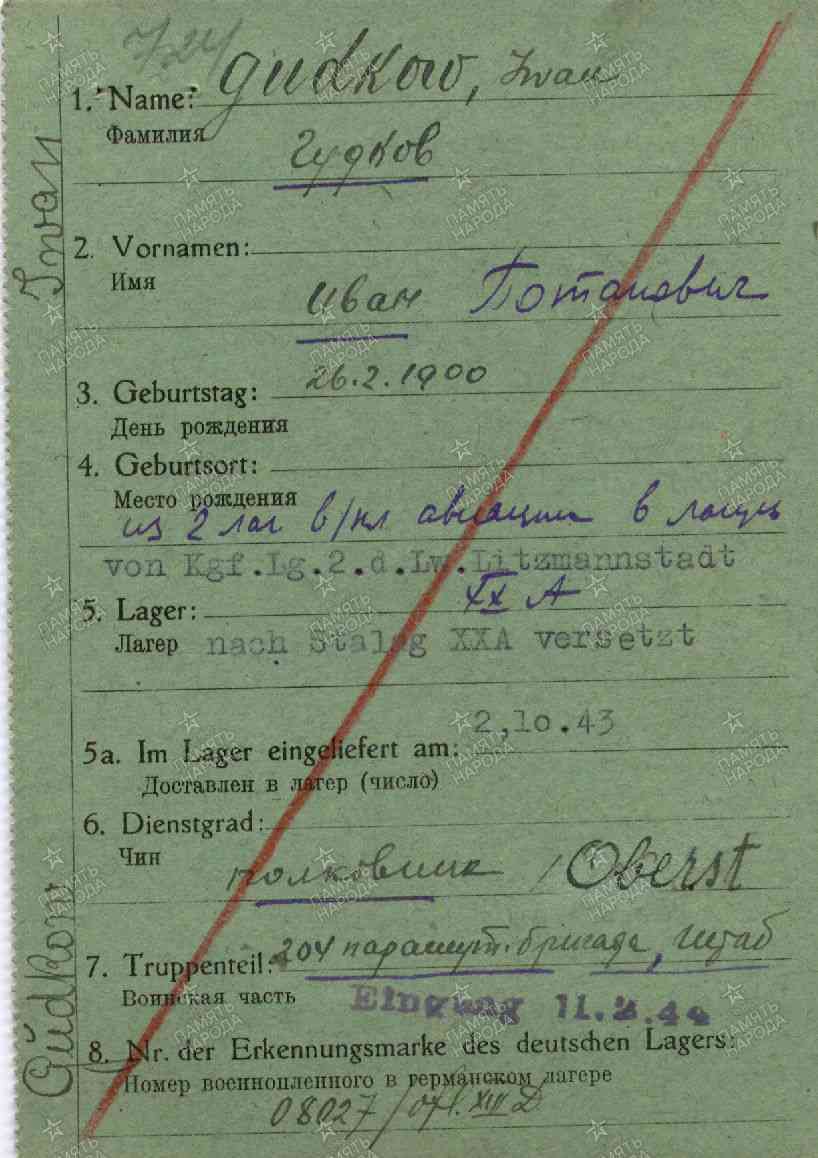 724
1. Name: Gudkow, Iwan
Фамилия
Гудков
2. Vornamen:
Имя
Иван Потапович
3. Geburtstag: 26.2.1900
День рождения
4. Geburtsort:
Место рождения
из 2 лаг в/пл авиации в лагерь
von Kgf.Lg.2.d.Lw.Litzmannstadt
XX A
5. Lager:
Лагер nach Stalag XXA versetzt
2,10.43
5a. Im Lager eingeliefert am:
Доставлен в лагер (число)
6. Dienstgrad:
Чин
полковник / Oberst
7. Truppenteil: 204 парашут. бригада, штаб
Воинская часть Eingang 11.
8. Nr. der Erkennungsmarke des deutschen Lagers:
Номер военнопленного в германском лагере
08027 / Ofl. XIII D
Iwan
Gudkow
ПАМЯТЬ НАРОДА